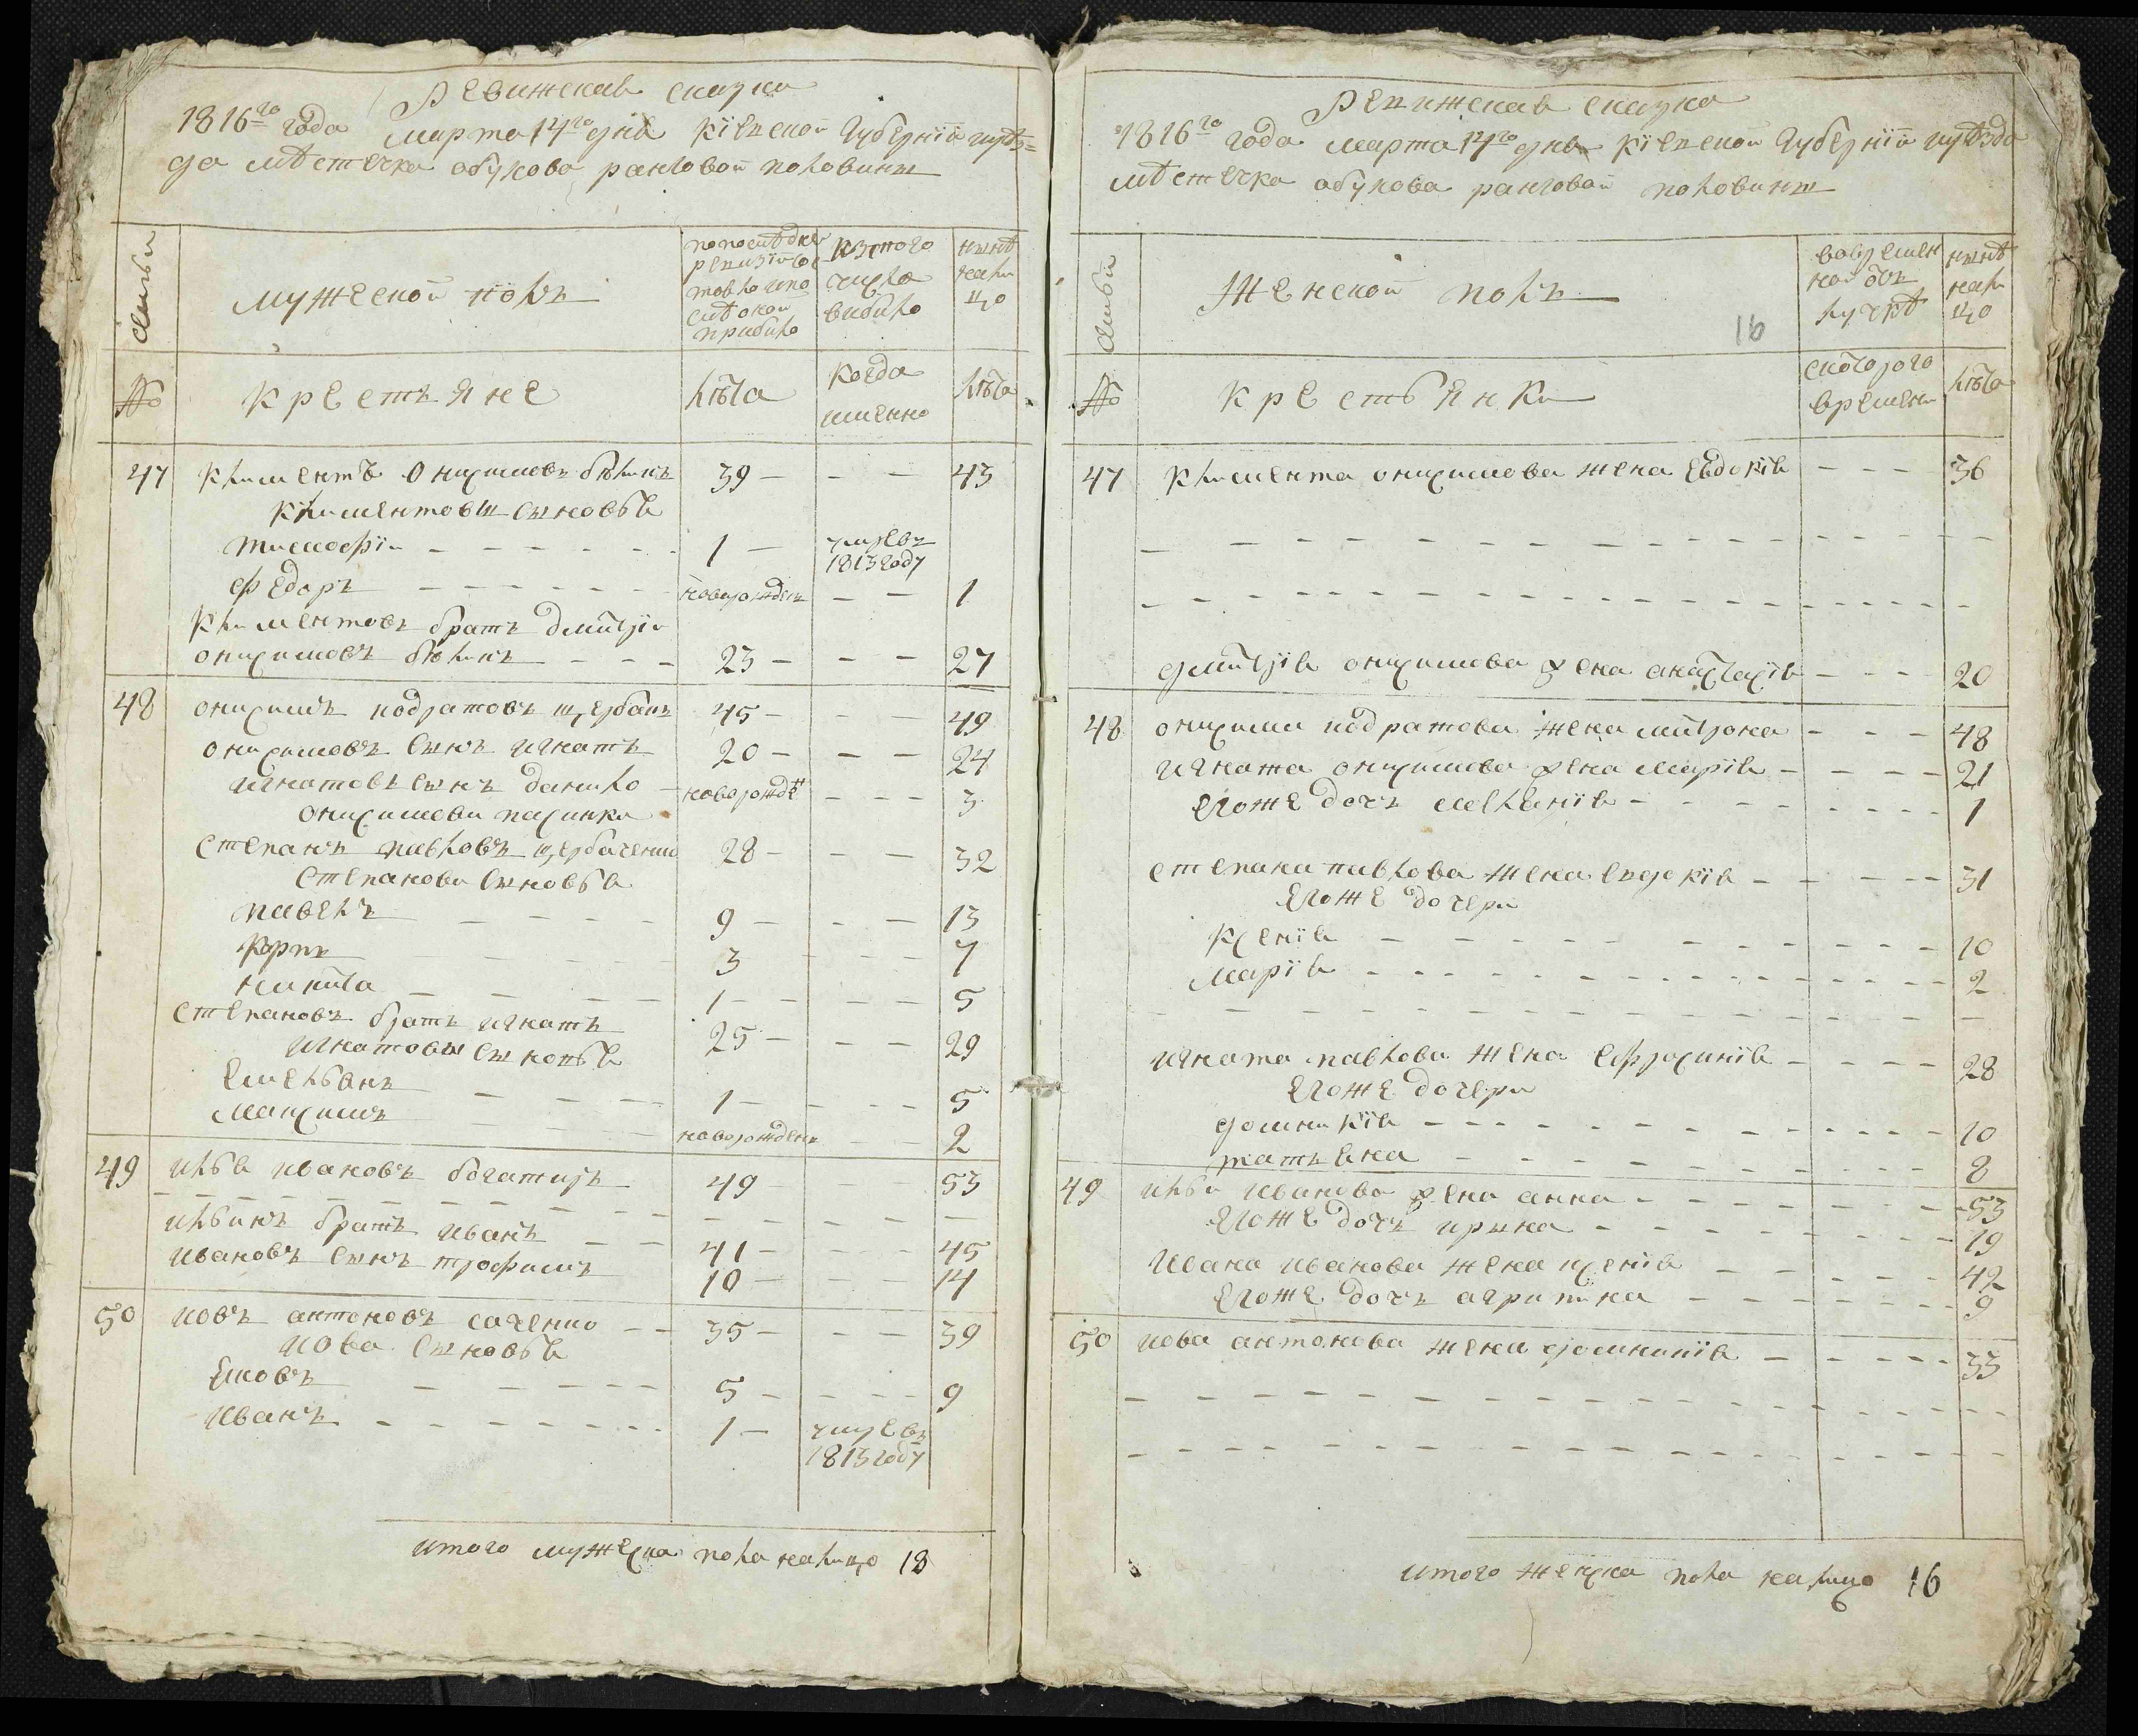 Ревижская сказка
1816го года Марта 14го дня Кіевской Губерніи и уѣз=
да мѣстечка обухова ранговой половины
семьи
мужеской полъ
по последней ревизіи состояло и после оной прибыло
изъ того числа выбыло
нынѣ на лицо
№
крестьяне
лѣта
когда именно
лѣта
47 Климентъ Онисимовъ бѣликъ 39 — — — 43
Климентовы сыновья
тимофій — — — 1 — умре въ 1813 году
федоръ — — — новорожденъ — — 1
Климентовъ братъ дмитрій
онисимовъ бѣликъ — — — 23 — — — 27
48 онисимъ кодратовъ щербакъ 45 — — — 49
онисимовъ сынъ игнатъ 20 — — — 24
игнатовъ сынъ данило — новорожден — — — 3
онисимови пасинки
степанъ павловъ щербаченко 28 — — — 32
степанови сыновья
павелъ — — — 9 — — — 13
Карпъ — — — 3 — — — 7
никита — — — 1 — — — 5
степановъ братъ игнатъ 25 — — — 29
игнатовы сыновья
Емельянъ — — — 1 — — — 5
Максимъ — — — новорожденъ — — 2
49 илья ивановъ богатиръ 49 — — — 53
— — — — — —
ильинъ братъ иванъ — — 41 — — — 45
ивановъ сынъ трофимъ 10 — — — 14
50 иовъ антоновъ саченко — — 35 — — — 39
иова сыновья
Яковъ — — — 5 — — — 9
иванъ — — — 1 — умре въ 1813 году
итого мужеска пола налицо 18
Ревижская сказка
1816го года марта 14го дня Кіевской Губерніи и уѣзда
мѣстечка обухова ранговой половины
16
семьи
Женской полъ
во временной отлучкѣ
нынѣ на лицо
№
крестьянки
с которого времени
лѣта
47 Климента онисимова жена Евдокія — — — 36
— — — — — —
— — — — — —
дмитрія онисимова жена анастасія — — — 20
48 онисима кодратова жена митрона — — — 48
игната онисимова жена марія — — — 21
Егоже дочь меланія — — — 1
степана павлова жена евдокія — — — 31
Егоже дочери
Ксенія — — — 10
марія — — — 2
— — — — — —
игната павлова жена ефросинія — — — 28
Егоже дочери
домникія — — — 10
татьяна — — — 8
49 ильи иванова жена анна — — — 53
Егоже дочь ирына — — — 19
Ивана иванова жена ксенія — — — 42
Егоже дочъ агрипина — — — 9
50 иова антонова жена домникія — — — 33
— — — — — —
— — — — — —
итого женска пола налицо 16